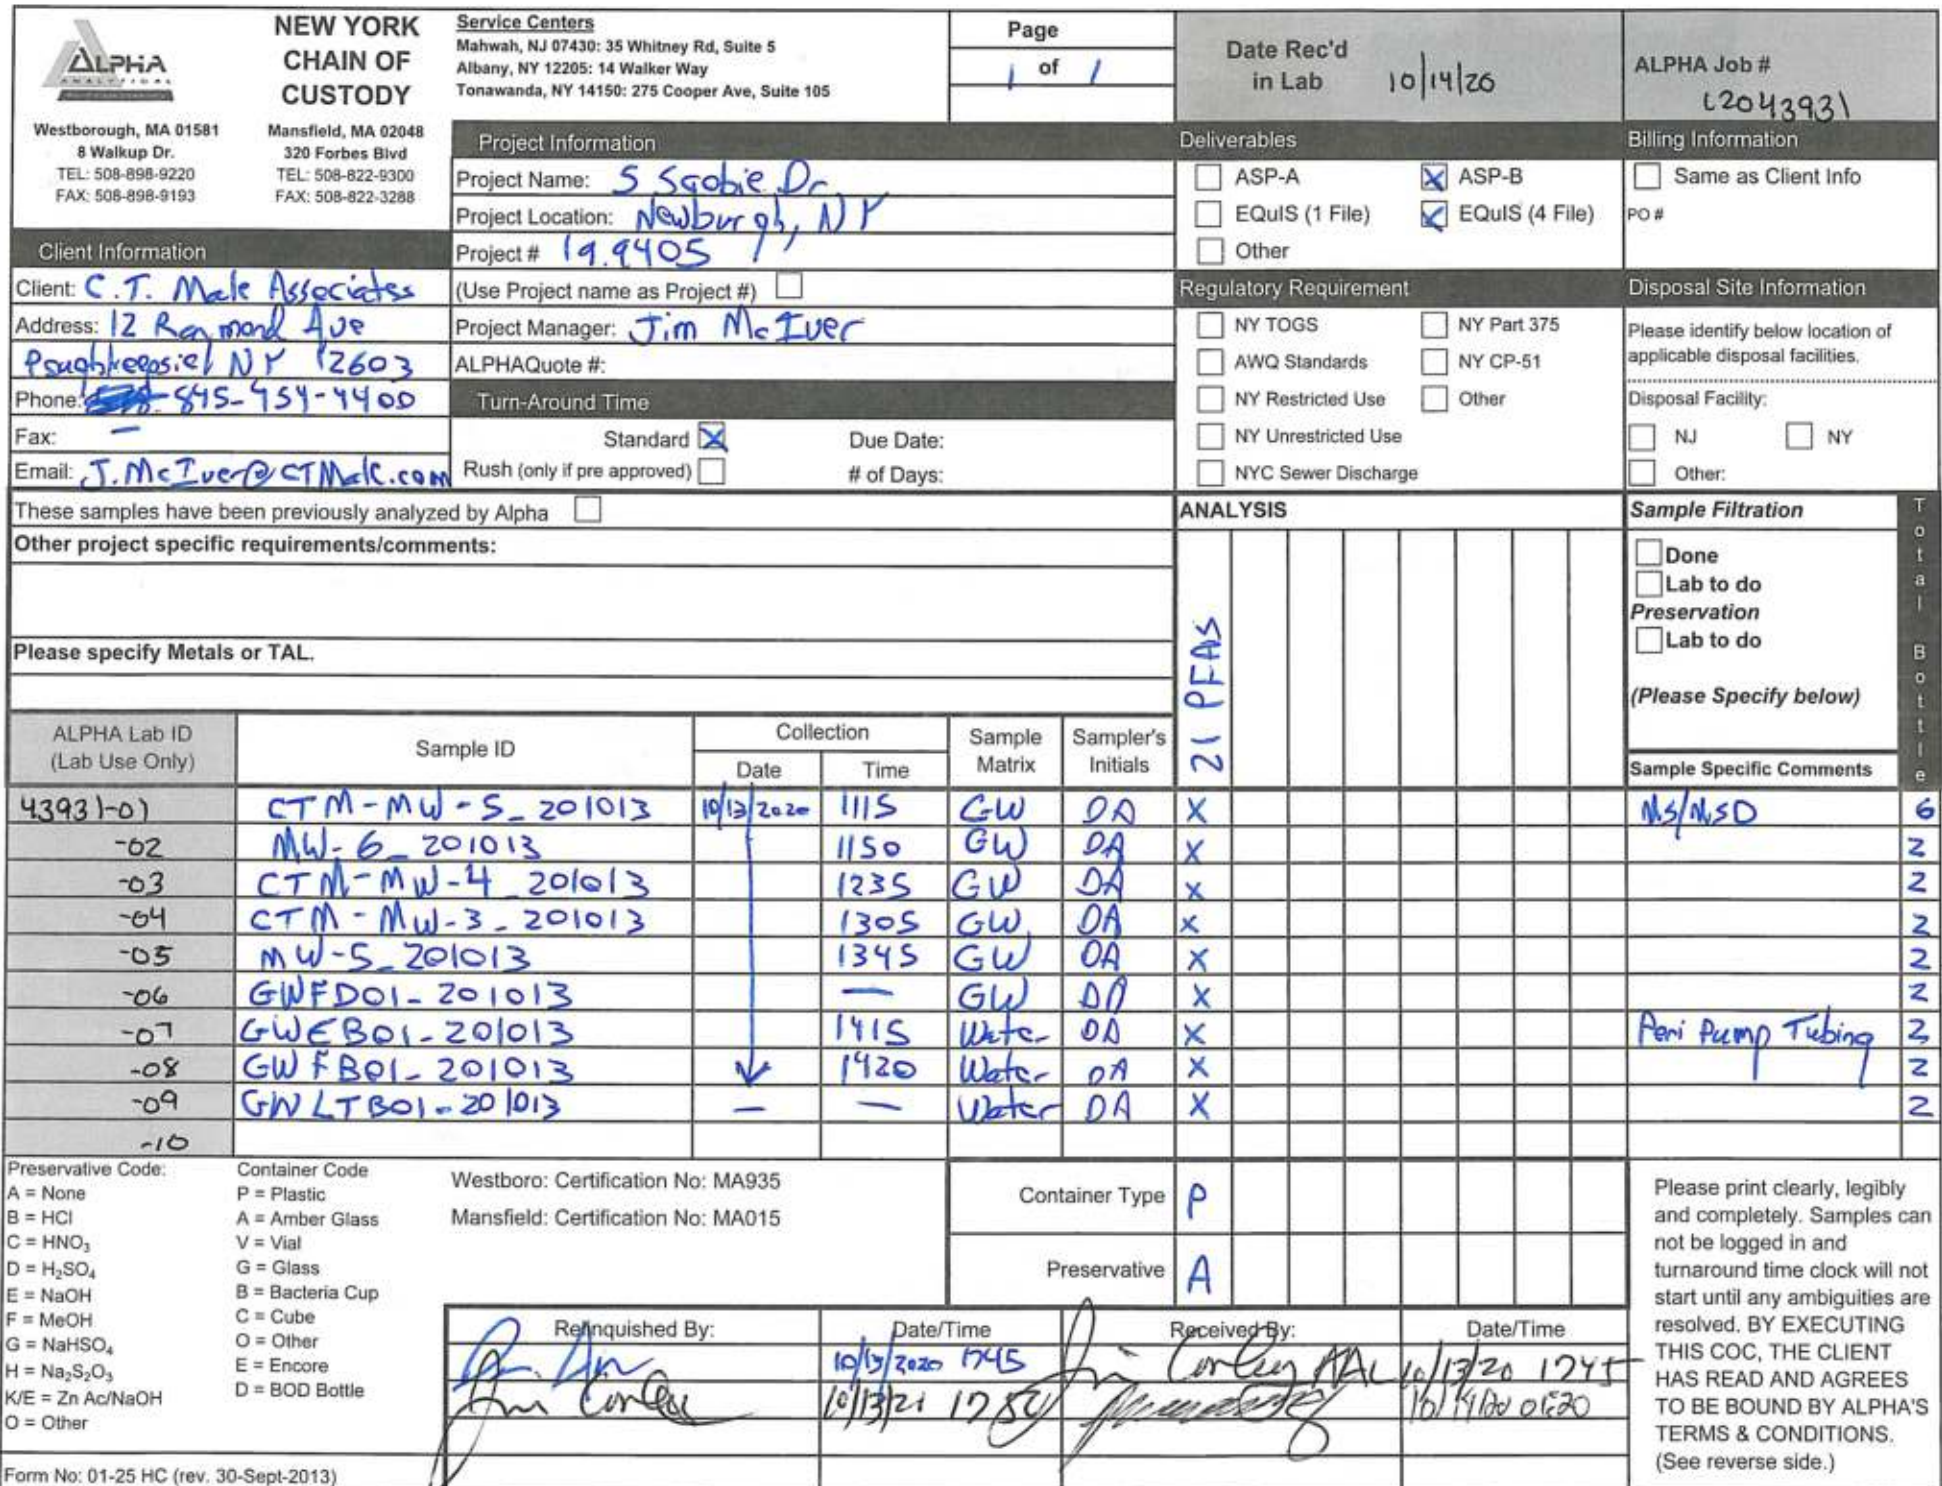 ALPHA
ANALYTICAL
Westborough, MA 01581
8 Walkup Dr.
TEL: 508-898-9220
FAX: 508-898-9193
NEW YORK
CHAIN OF
CUSTODY
Mansfield, MA 02048
320 Forbes Blvd
TEL: 508-822-9300
FAX: 508-822-3288
Service Centers
Mahwah, NJ 07430: 35 Whitney Rd, Suite 5
Albany, NY 12205: 14 Walker Way
Tonawanda, NY 14150: 275 Cooper Ave, Suite 105
Page
1 of 1
Date Rec'd
in Lab 10/14/20
ALPHA Job #
L2043931
Project Information
Project Name: 5 Scobie Dr
Project Location: Newburgh, NY
Project # 19.9405
(Use Project name as Project #)
Project Manager: Jim McIver
ALPHAQuote #:
Client Information
Client: C.T. Male Associates
Address: 12 Raymond Ave
Poughkeepsie, NY 12603
Phone: 845-454-4400
Fax: —
Email: J.McIver@CTMale.com
Turn-Around Time
Standard X Due Date:
Rush (only if pre approved) # of Days:
Deliverables
ASP-A X ASP-B
EQuIS (1 File) X EQuIS (4 File)
Other
Regulatory Requirement
NY TOGS NY Part 375
AWQ Standards NY CP-51
NY Restricted Use Other
NY Unrestricted Use
NYC Sewer Discharge
Billing Information
Same as Client Info
PO #
Disposal Site Information
Please identify below location of
applicable disposal facilities.
Disposal Facility:
NJ NY
Other:
These samples have been previously analyzed by Alpha
Other project specific requirements/comments:
Please specify Metals or TAL.
ANALYSIS
21 PFAS
Sample Filtration
Done
Lab to do
Preservation
Lab to do
(Please Specify below)
Total Bottle
ALPHA Lab ID
(Lab Use Only)
Sample ID
Collection
Date Time
Sample
Matrix
Sampler's
Initials
Sample Specific Comments
43931-01 CTM-MW-5_201013 10/13/2020 1115 GW DA X MS/MSD 6
-02 MW-6_201013 1150 GW DA X 2
-03 CTM-MW-4_201013 1235 GW DA X 2
-04 CTM-MW-3_201013 1305 GW DA X 2
-05 MW-5_201013 1345 GW DA X 2
-06 GWFD01_201013 — GW DA X 2
-07 GWEB01_201013 1415 Water DA X Peri Pump Tubing 2
-08 GWFB01_201013 1420 Water DA X 2
-09 GWLTB01_201013 — — Water DA X 2
-10
Preservative Code:
A = None
B = HCl
C = HNO₃
D = H₂SO₄
E = NaOH
F = MeOH
G = NaHSO₄
H = Na₂S₂O₃
K/E = Zn Ac/NaOH
O = Other
Container Code
P = Plastic
A = Amber Glass
V = Vial
G = Glass
B = Bacteria Cup
C = Cube
O = Other
E = Encore
D = BOD Bottle
Westboro: Certification No: MA935
Mansfield: Certification No: MA015
Container Type P
Preservative A
Relinquished By: Date/Time Received By: Date/Time
10/13/2020 1745 Jim Corley AAL 10/13/20 1745
Jim Corley
Please print clearly, legibly
and completely. Samples can
not be logged in and
turnaround time clock will not
start until any ambiguities are
resolved. BY EXECUTING
THIS COC, THE CLIENT
HAS READ AND AGREES
TO BE BOUND BY ALPHA'S
TERMS & CONDITIONS.
(See reverse side.)
Form No: 01-25 HC (rev. 30-Sept-2013)